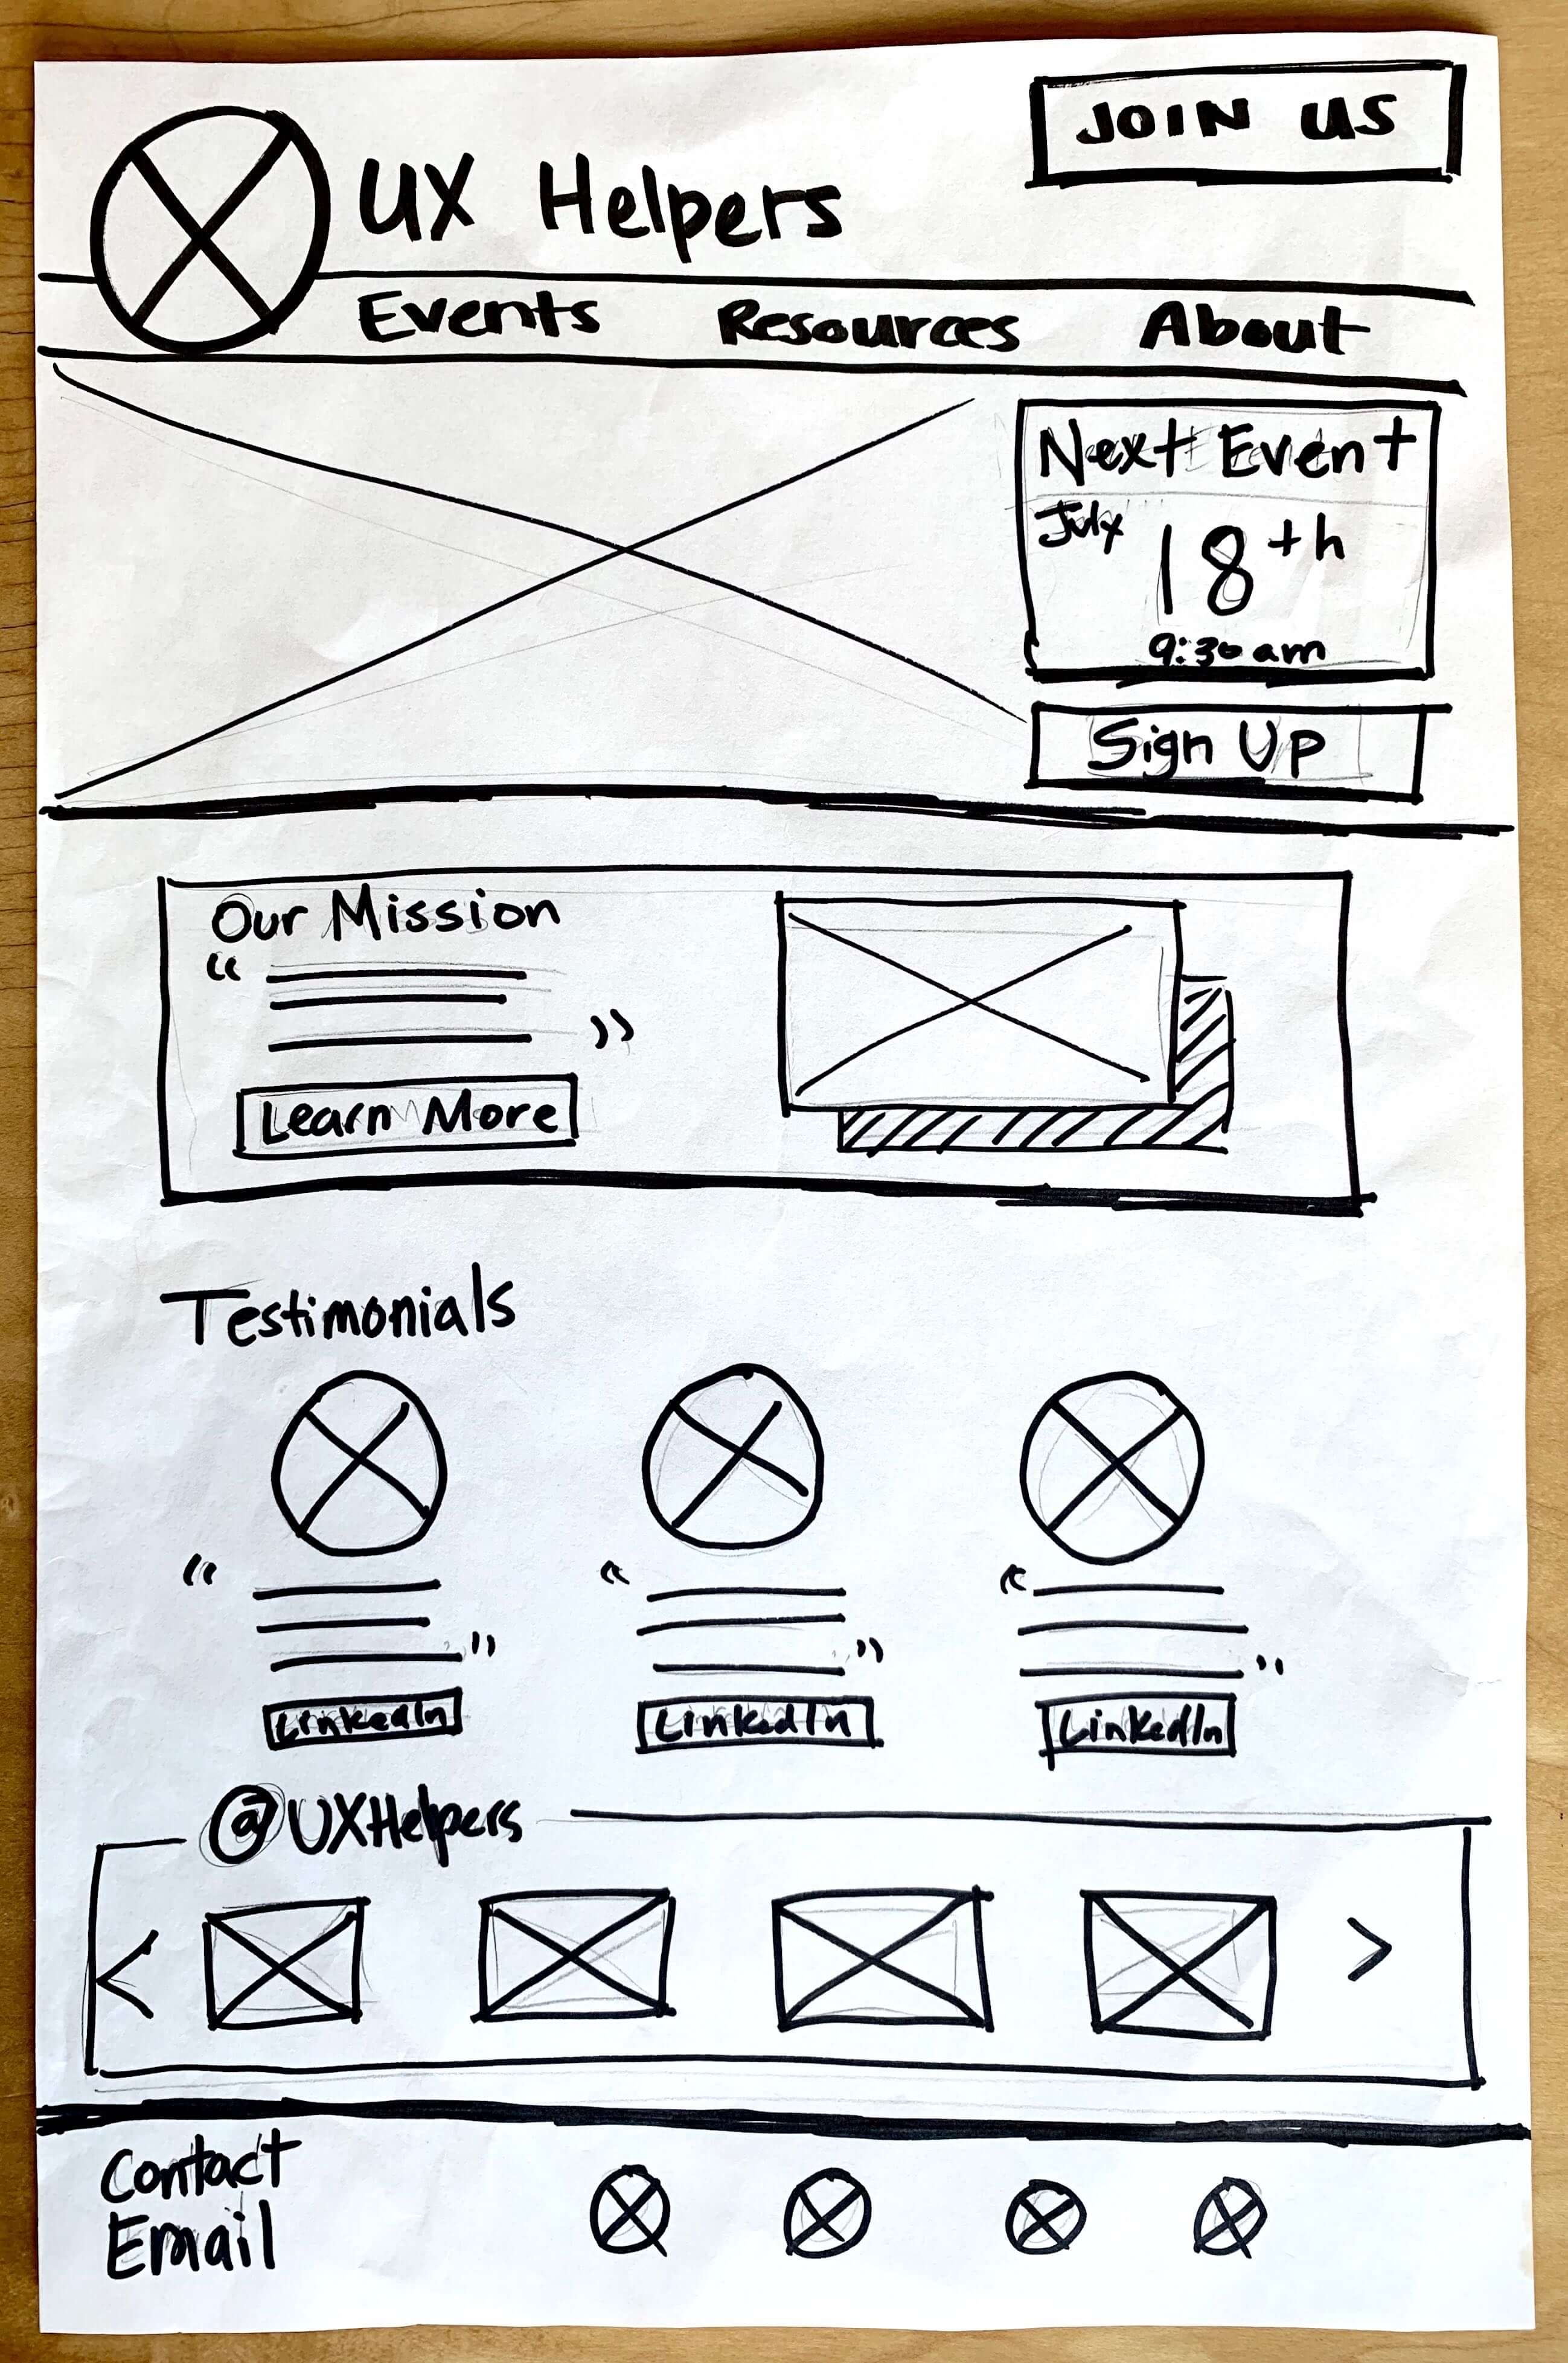 JOIN US
UX Helpers
Events Resources About
Next Event
July 18th
9:30am
Sign Up
Our Mission
“
”
Learn More
Testimonials
“ ” “ ” “ ”
LinkedIn LinkedIn LinkedIn
@UXHelpers
< >
Contact
Email